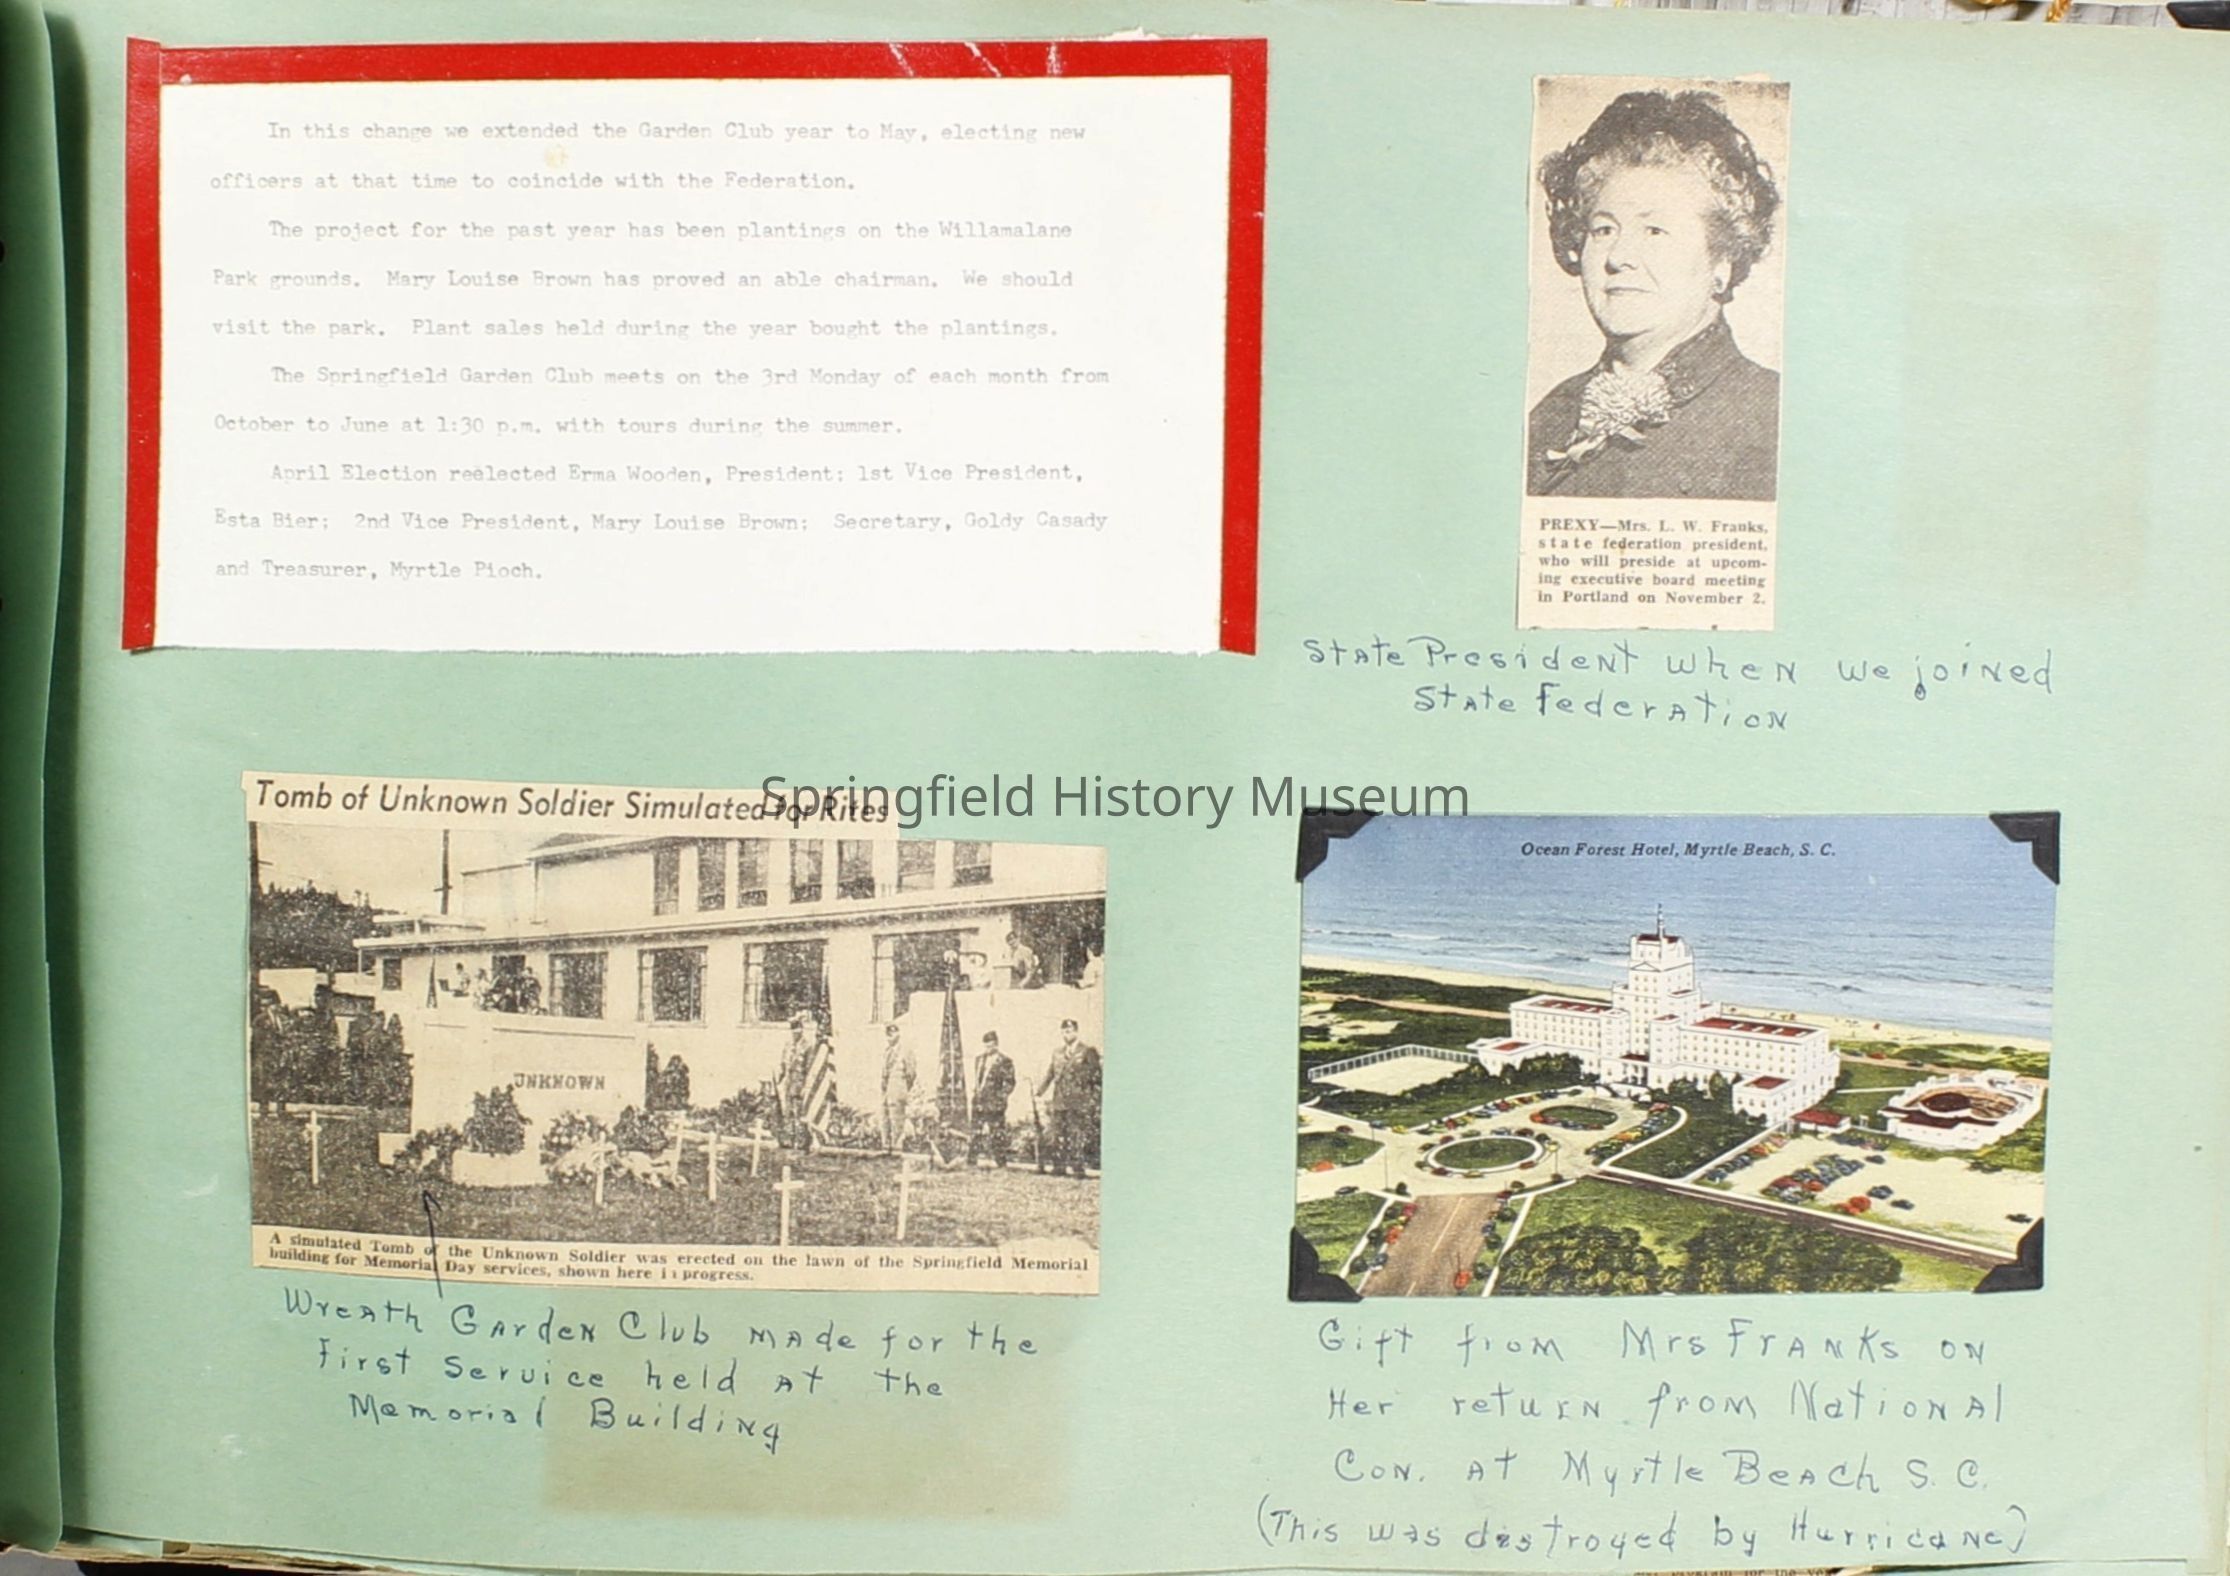 In this change we extended the Garden Club year to May, electing new
officers at that time to coincide with the Federation.
The project for the past year has been plantings on the Willamalane
Park grounds. Mary Louise Brown has proved an able chairman. We should
visit the park. Plant sales held during the year bought the plantings.
The Springfield Garden Club meets on the 3rd Monday of each month from
October to June at 1:30 p.m. with tours during the summer.
April Election reelected Erma Wooden, President; 1st Vice President,
Esta Bier; 2nd Vice President, Mary Louise Brown; Secretary, Goldy Casady
and Treasurer, Myrtle Pioch.
PREXY—Mrs. L. W. Franks,
state federation president,
who will preside at upcom-
ing executive board meeting
in Portland on November 2.
State President when we joined
State Federation
Springfield History Museum
Tomb of Unknown Soldier Simulated for Rites
UNKNOWN
A simulated Tomb of the Unknown Soldier was erected on the lawn of the Springfield Memorial
building for Memorial Day services, shown here in progress.
Wreath Garden Club made for the
First Service held at the
Memorial Building
Ocean Forest Hotel, Myrtle Beach, S. C.
Gift from Mrs Franks on
Her return from National
Con. at Myrtle Beach S. C.
(This was destroyed by Hurricane)